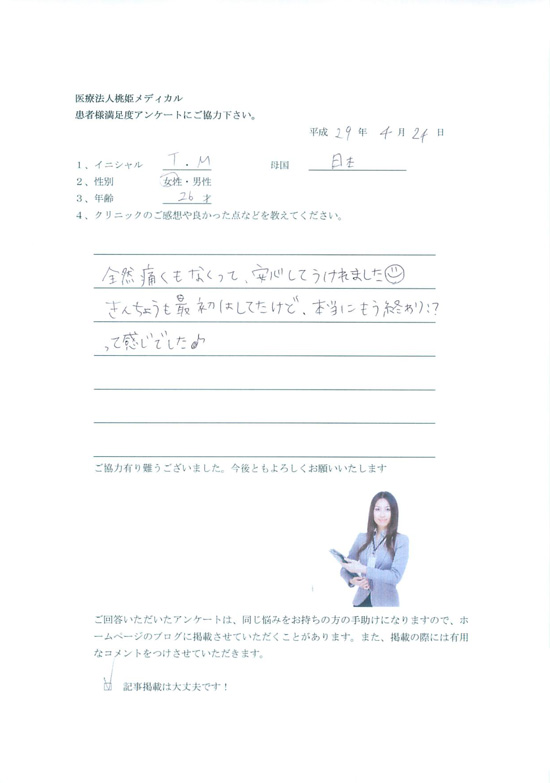 医療法人桃姫メディカル
患者様満足度アンケートにご協力下さい。
平成 29 年 4 月 24 日
1、イニシャル T.M 母国 日本
2、性別 女性・男性
3、年齢 26 才
4、クリニックのご感想や良かった点などを教えてください。
全然痛くもなくって、安心してうけれました☺
きんちょうも最初はしてたけど、本当にもう終わり!?
って感じでした♪
ご協力有り難うございました。今後ともよろしくお願いいたします
ご回答いただいたアンケートは、同じ悩みをお持ちの方の手助けになりますので、ホ
ームページのブログに掲載させていただくことがあります。また、掲載の際には有用
なコメントをつけさせていただきます。
☑ 記事掲載は大丈夫です！